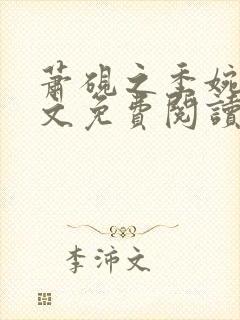 蕭硯之季婉
文免費閱讀
李沛文